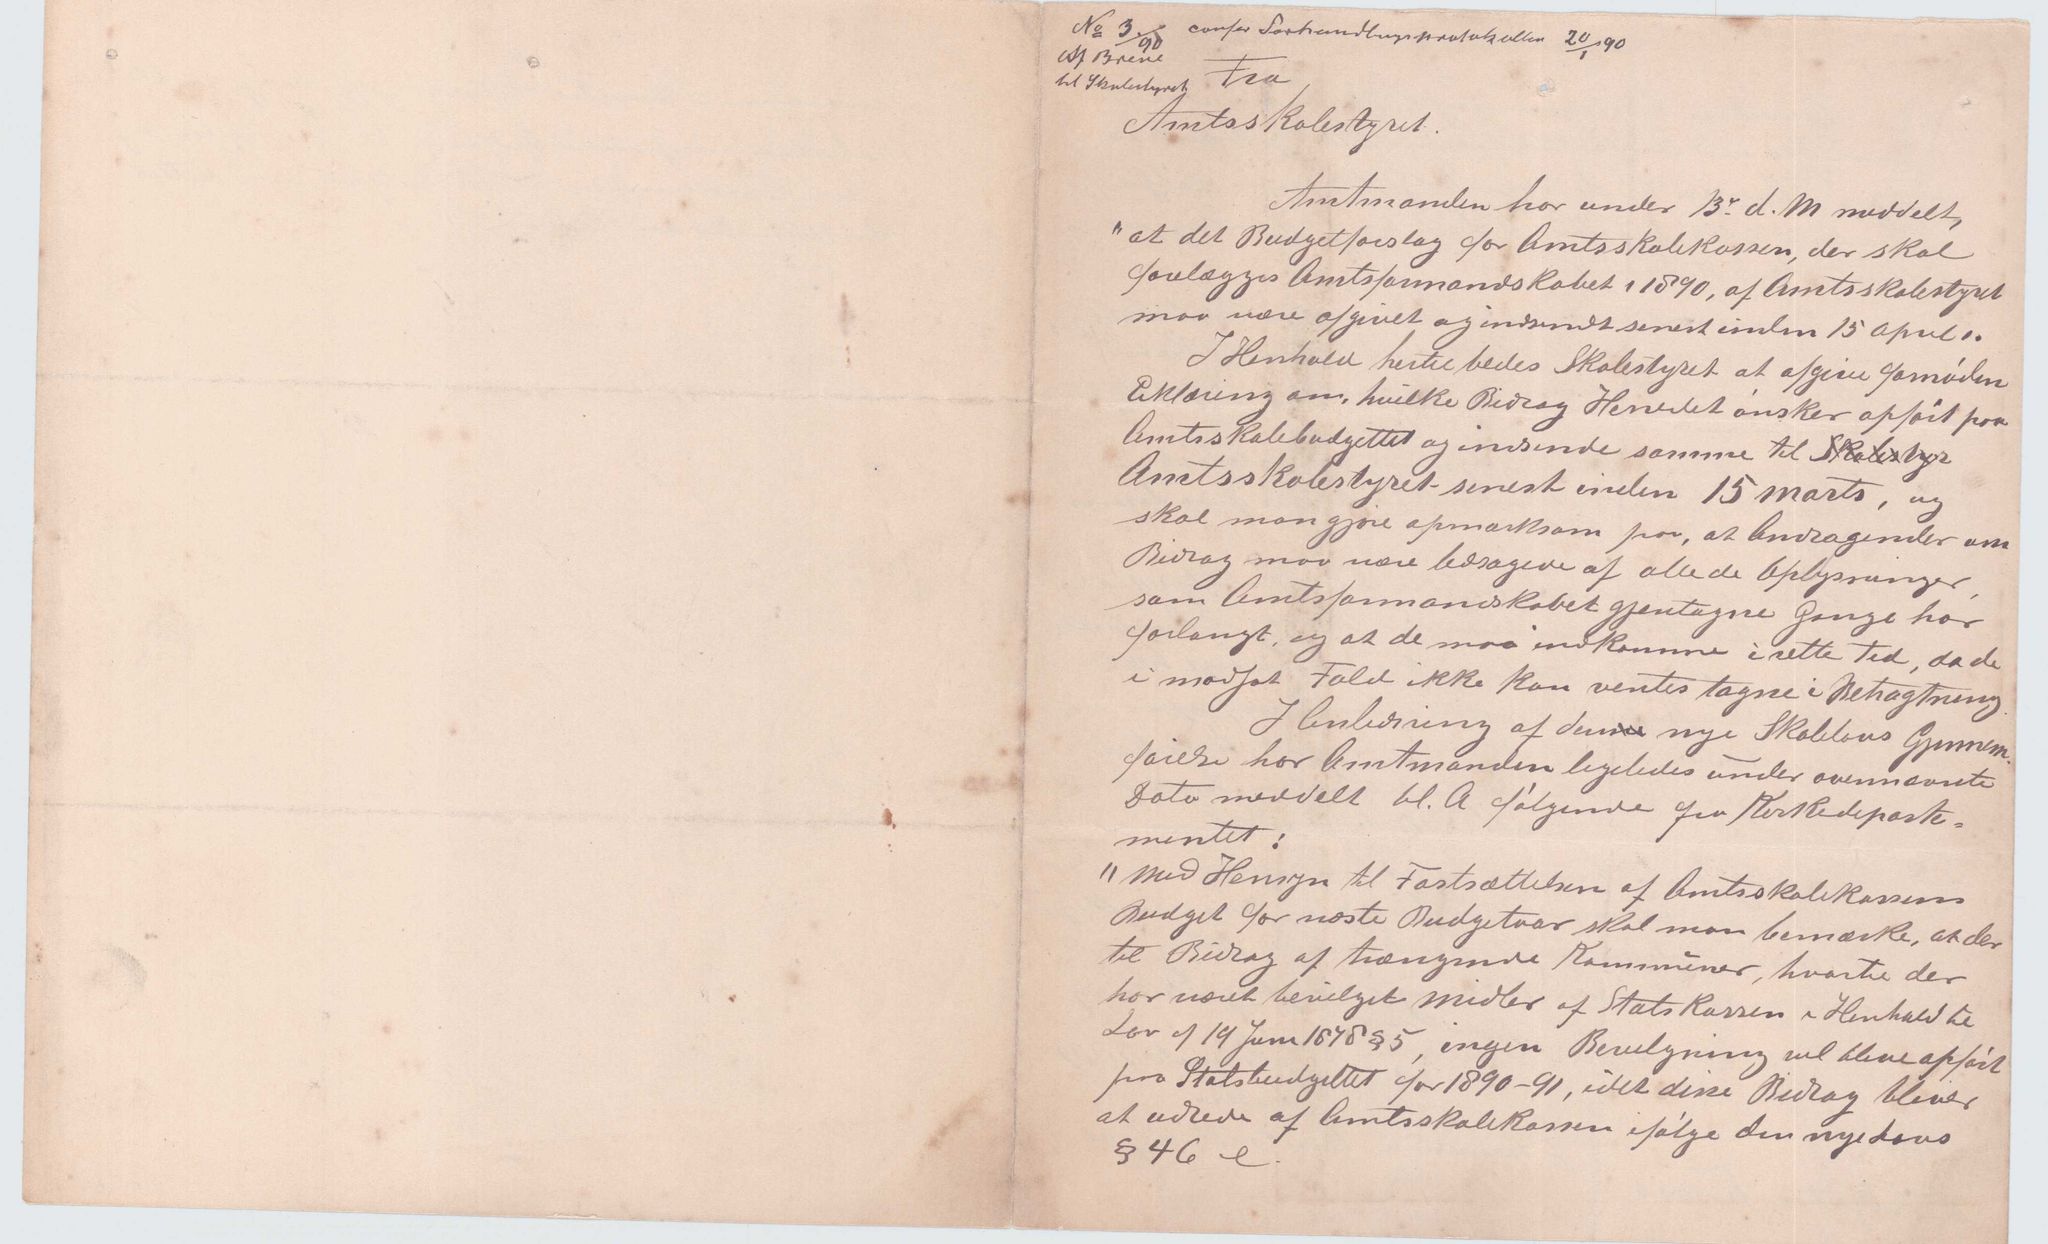 No 3/90 confer Forhandlingsprotokollen 20/1 90
Af Breve
til Skolestyret
Fra
Amtsskolestyret.
Amtmanden har under 13de d. M meddelt,
"at det Budgetforslag for Amtsskolekassen, der skal
forelægges Amtsformandskabet i 1890, af Amtsskolestyret
maa være afgivet og indsendt senest inden 15 April".
I Henhold hertil bedes Skolestyret at afgive fornøden
Erklæring om, hvilke Bidrag Herredet ønsker opført paa
Amtsskolebudgettet og indsende samme til Skolestyr
Amtsskolestyret senest inden 15 Marts, og
skal man gjøre opmærksom paa, at Andragender om
Bidrag maa være ledsagede af alle de Oplysninger,
som Amtsformandskabet gjentagne Gange har
forlangt, og at de maa indkomme i rette Tid, da de
i modsat Fald ikke kan ventes tagne i Betragtning.
I Anledning af den nye Skolelovs Gjennem-
førelse har Amtmanden ligeledes under ovennævnte
Dato meddelt bl. A følgende fra Kirkedepart-
mentet:
"Med Hensyn til Fastsættelsen af Amtsskolekassens
Budget for næste Budgetaar skal man bemærke, at der
til Bidrag af trængende Kommuner, hvortil der
har været bevilget Midler af Statskassen i Henhold til
Lov af 19 Juni 1878 § 5, ingen Bevilgning vil blive opført
paa Statsbudgettet for 1890-91, idet disse Bidrag bliver
at udrede af Amtsskolekassen ifølge den nye Lovs
§ 46 e.